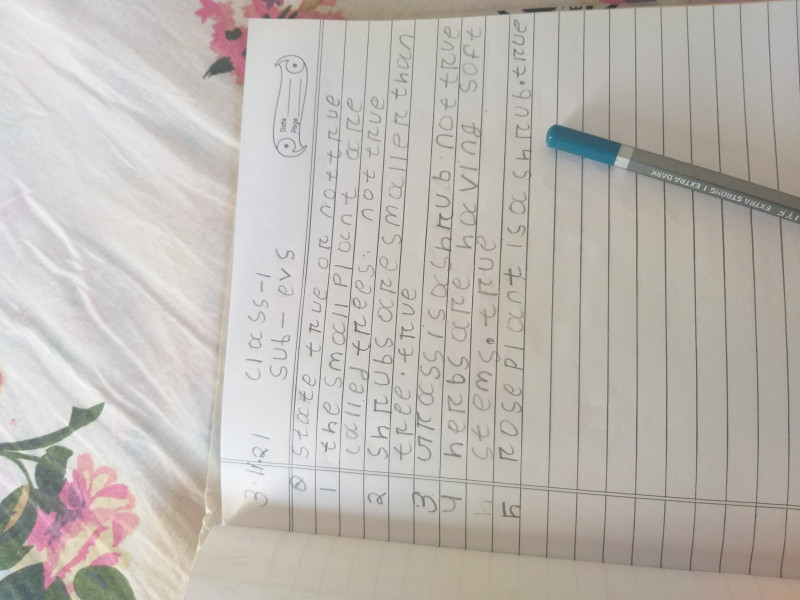 3.11.21 Class-1
Sub-evs
Date
Page
Q State true or not true
1 the small plant are
called trees. not true
2 Shrubs are smaller than
tree. true
3 Grass is a shrub. not true
4 herbs are having soft
stems. true
5 rose plant is a shrub. true
EXTRA STRONG I EXTRA DARK